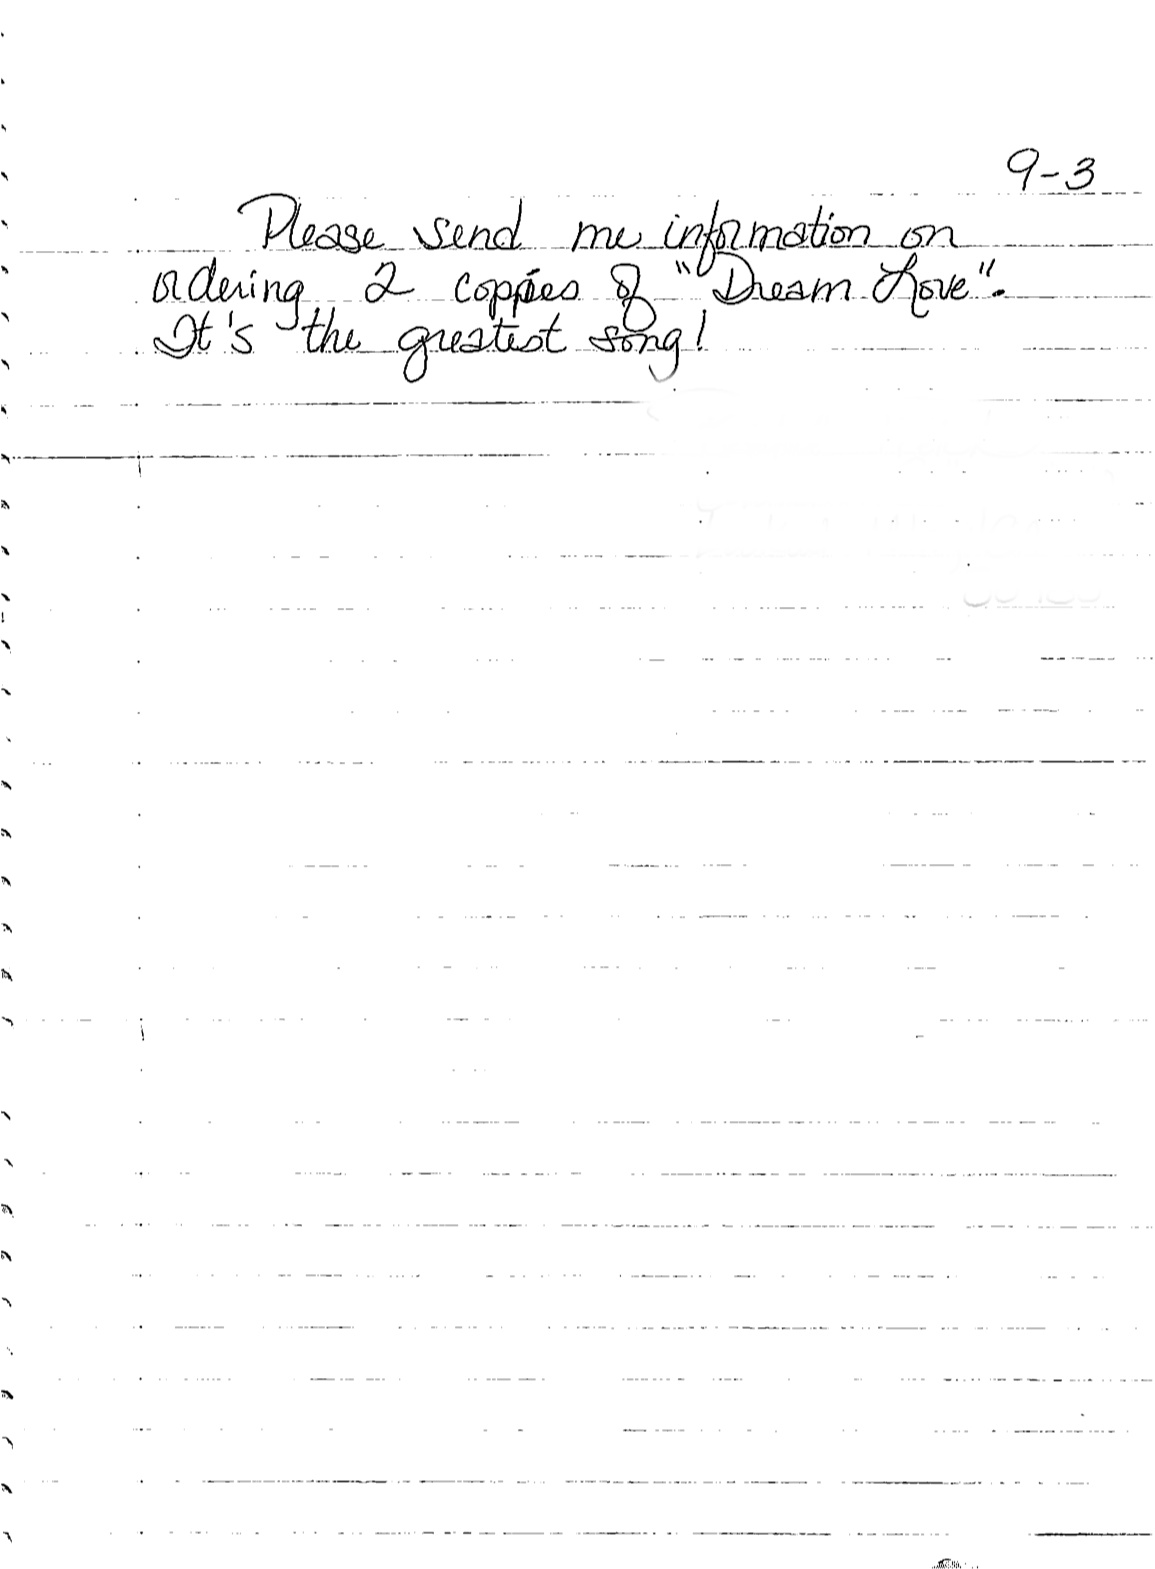 9-3
Please send me information on
ordering 2 coppies of "Dream Love".
It's the greatest song!